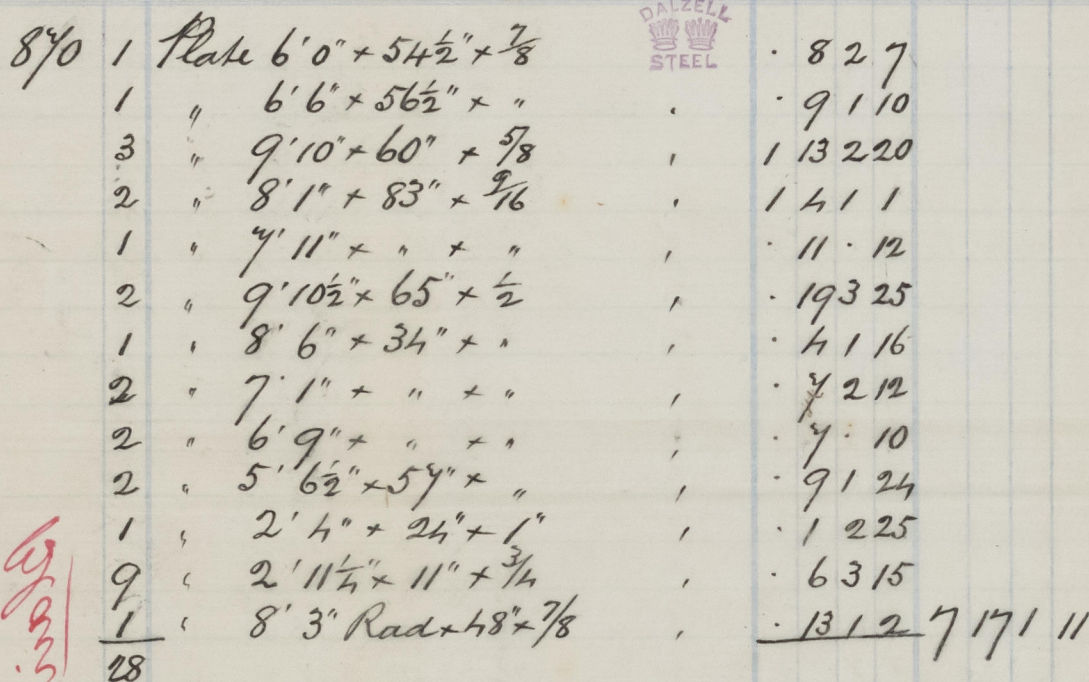 DALZELL
STEEL
870 1 Plate 6' 0" + 54½" + 7/8 · 8 2 7
1 " 6' 6" + 56½" + " " · 9 1 10
3 " 9' 10" + 60" + 5/8 " 1 13 2 20
2 " 8' 1" + 83" + 9/16 " 1 4 1 1
1 " 7' 11" + " + " " · 11 · 12
2 " 9' 10½" + 65" + ½ " · 19 3 25
1 " 8' 6" + 34" + " " · 4 1 16
2 " 7' 1" + " + " " · 7 2 12
2 " 6' 9" + " + " " · 7 · 10
2 " 5' 6½" + 57" + " " · 9 1 24
1 " 2' 4" + 24" + 1" " · 1 2 25
9 " 2' 11¼" + 11" + 3/4 " · 6 3 15
1 " 8' 3" Rad + 48" + 7/8 " · 13 1 2 7 17 1 11
28